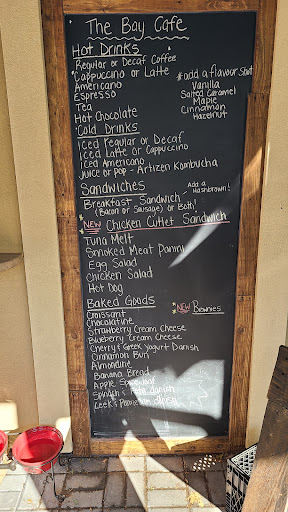 The Bay Cafe
Hot Drinks
Regular or Decaf Coffee
Cappuccino or Latte
Americano
Espresso
Tea
Hot Chocolate
*add a flavour shot
Vanilla
Salted Caramel
Maple
Cinnamon
Hazelnut
Cold Drinks
Iced Regular or Decaf
Iced Latte or Cappuccino
Iced Americano
Juice or Pop - Artizen Kombucha
Sandwiches
Breakfast Sandwich - Add a Hashbrown!
(Bacon or Sausage) or Both!
NEW Chicken Cutlet Sandwich
Tuna Melt
Smoked Meat Panini
Egg Salad
Chicken Salad
Hot Dog
Baked Goods
Croissant
Chocolatine
Strawberry Cream Cheese
Blueberry Cream Cheese
Cherry & Greek Yogurt Danish
Cinnamon Bun
Almondine
Banana Bread
Apple
Spinach & Feta danish
Leek &
*NEW Brownies